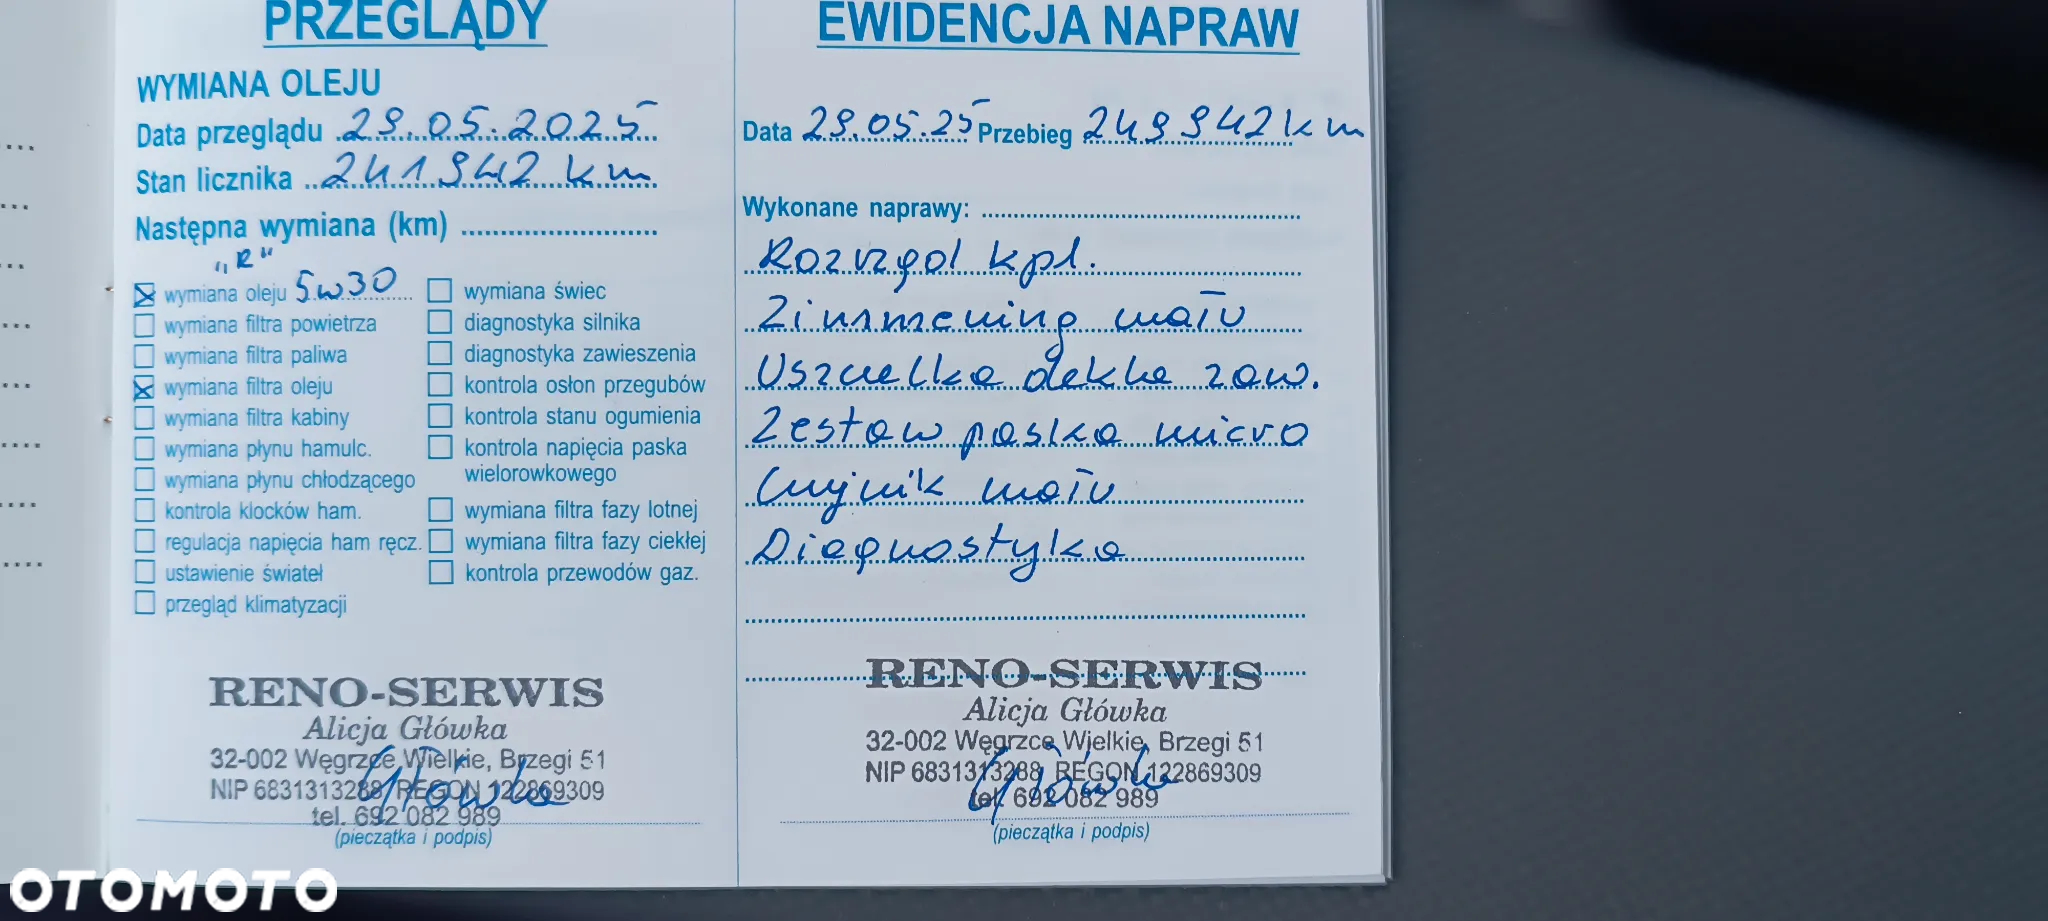 PRZEGLĄDY
WYMIANA OLEJU
Data przeglądu 29.05.2025
Stan licznika 241942 km
Następna wymiana (km)
"R"
wymiana oleju 5w30
wymiana filtra powietrza
wymiana filtra paliwa
wymiana filtra oleju
wymiana filtra kabiny
wymiana płynu hamulc.
wymiana płynu chłodzącego
kontrola klocków ham.
regulacja napięcia ham ręcz.
ustawienie świateł
przegląd klimatyzacji
wymiana świec
diagnostyka silnika
diagnostyka zawieszenia
kontrola osłon przegubów
kontrola stanu ogumienia
kontrola napięcia paska
wielorowkowego
wymiana filtra fazy lotnej
wymiana filtra fazy ciekłej
kontrola przewodów gaz.
RENO-SERWIS
Alicja Główka
32-002 Węgrzce Wielkie, Brzegi 51
NIP 6831313288, REGON 122869309
tel. 692 082 989
Główka
(pieczątka i podpis)
EWIDENCJA NAPRAW
Data 29.05.25 Przebieg 249942 km
Wykonane naprawy:
Rozrząd kpl.
Zimmering wału
Uszczelka dekla zaw.
Zestaw paska micro
Czujnik wału
Diagnostyka
RENO-SERWIS
Alicja Główka
32-002 Węgrzce Wielkie, Brzegi 51
NIP 6831313288, REGON 122869309
tel. 692 082 989
Główka
(pieczątka i podpis)
OTOMOTO